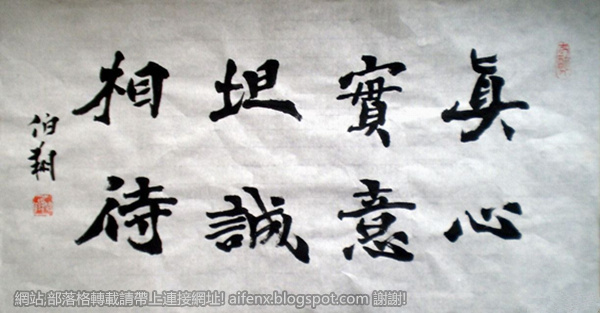 真心
實意
坦誠
相待
伯翔
網站,部落格轉載請帶上連接網址! aifenx.blogspot.com 謝謝!